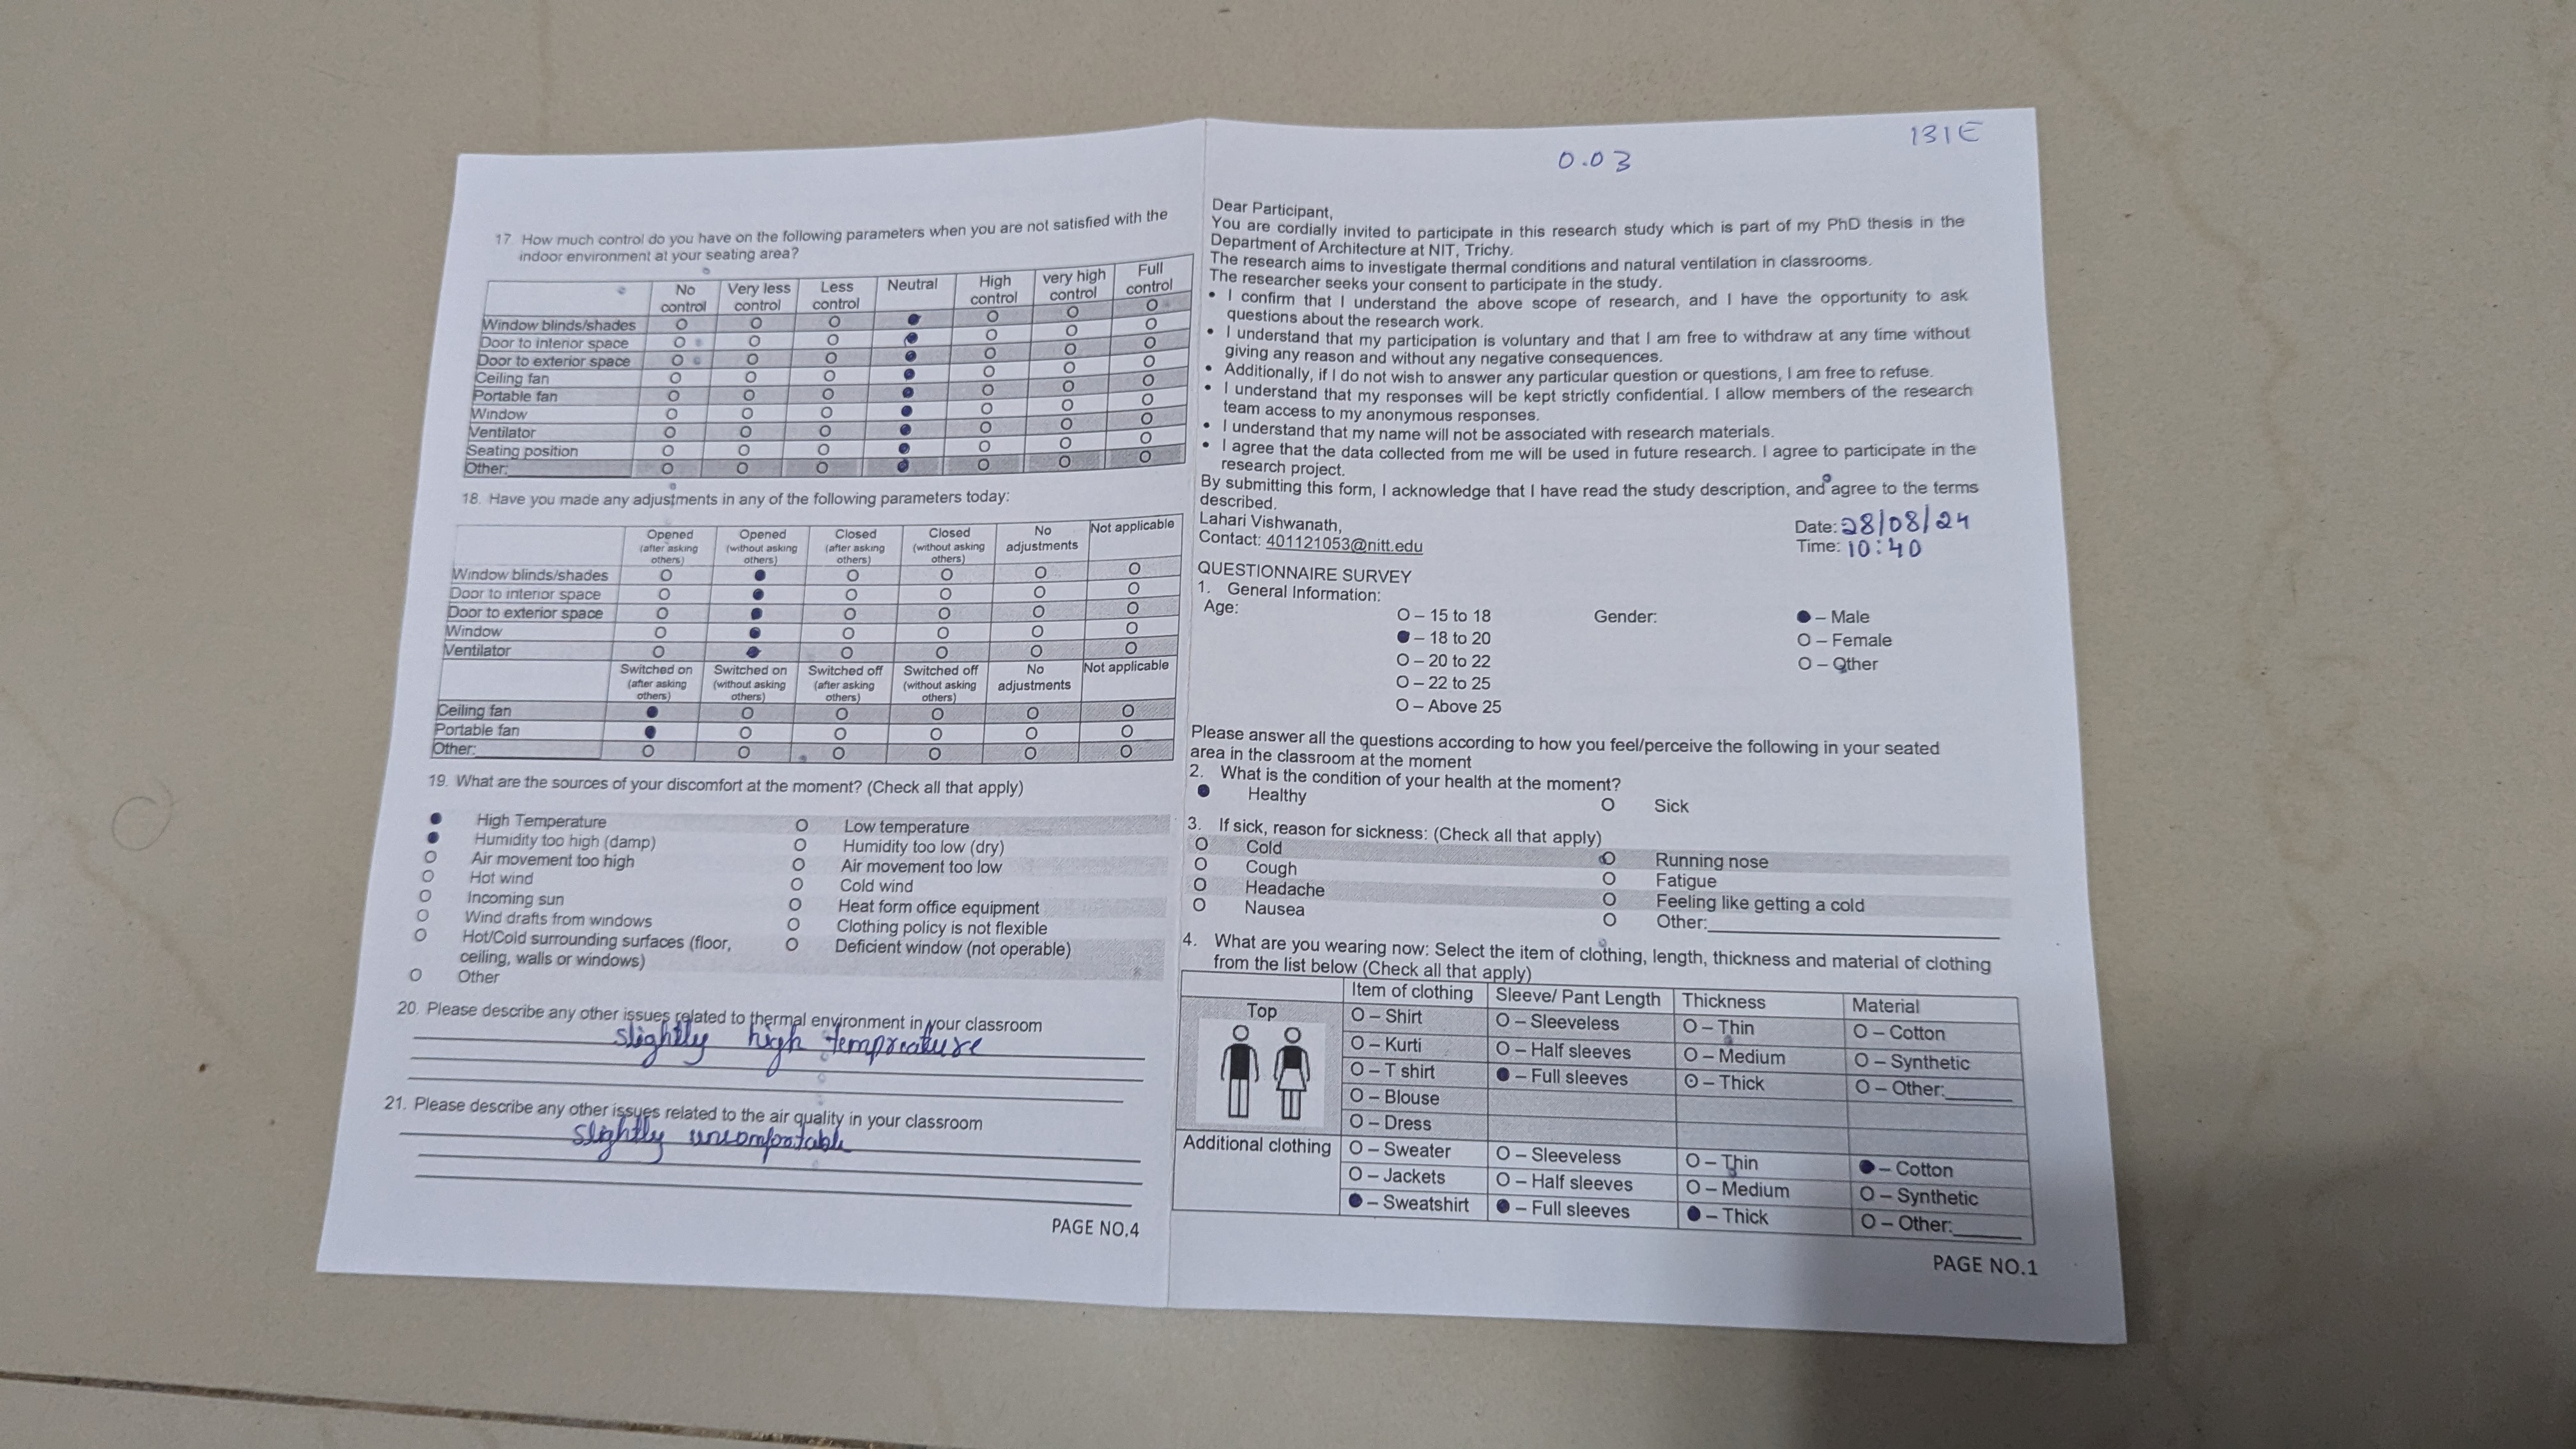 17. How much control do you have on the following parameters when you are not satisfied with the
indoor environment at your seating area?
No control Very less control Less control Neutral High control very high control Full control
Window blinds/shades O O O ● O O O
Door to interior space O O O ● O O O
Door to exterior space O O O ● O O O
Ceiling fan O O O ● O O O
Portable fan O O O ● O O O
Window O O O ● O O O
Ventilator O O O ● O O O
Seating position O O O ● O O O
Other: O O O ● O O O
18. Have you made any adjustments in any of the following parameters today:
Opened (after asking others) Opened (without asking others) Closed (after asking others) Closed (without asking others) No adjustments Not applicable
Window blinds/shades O ● O O O O
Door to interior space O ● O O O O
Door to exterior space O ● O O O O
Window O ● O O O O
Ventilator O ● O O O O
Switched on (after asking others) Switched on (without asking others) Switched off (after asking others) Switched off (without asking others) No adjustments Not applicable
Ceiling fan ● O O O O O
Portable fan ● O O O O O
Other: O O O O O O
19. What are the sources of your discomfort at the moment? (Check all that apply)
● High Temperature O Low temperature
● Humidity too high (damp) O Humidity too low (dry)
O Air movement too high O Air movement too low
O Hot wind O Cold wind
O Incoming sun O Heat form office equipment
O Wind drafts from windows O Clothing policy is not flexible
O Hot/Cold surrounding surfaces (floor, O Deficient window (not operable)
ceiling, walls or windows)
O Other
20. Please describe any other issues related to thermal environment in your classroom
slightly high tempreature
21. Please describe any other issues related to the air quality in your classroom
slightly uncomfortable
PAGE NO.4
131E
0.03
Dear Participant,
You are cordially invited to participate in this research study which is part of my PhD thesis in the
Department of Architecture at NIT, Trichy.
The research aims to investigate thermal conditions and natural ventilation in classrooms.
The researcher seeks your consent to participate in the study.
• I confirm that I understand the above scope of research, and I have the opportunity to ask
questions about the research work.
• I understand that my participation is voluntary and that I am free to withdraw at any time without
giving any reason and without any negative consequences.
• Additionally, if I do not wish to answer any particular question or questions, I am free to refuse.
• I understand that my responses will be kept strictly confidential. I allow members of the research
team access to my anonymous responses.
• I understand that my name will not be associated with research materials.
• I agree that the data collected from me will be used in future research. I agree to participate in the
research project.
By submitting this form, I acknowledge that I have read the study description, and agree to the terms
described.
Lahari Vishwanath, Date: 28/08/24
Contact: 401121053@nitt.edu Time: 10:40
QUESTIONNAIRE SURVEY
1. General Information:
Age: O – 15 to 18 Gender: ● – Male
● – 18 to 20 O – Female
O – 20 to 22 O – Other
O – 22 to 25
O – Above 25
Please answer all the questions according to how you feel/perceive the following in your seated
area in the classroom at the moment
2. What is the condition of your health at the moment?
● Healthy O Sick
3. If sick, reason for sickness: (Check all that apply)
O Cold O Running nose
O Cough O Fatigue
O Headache O Feeling like getting a cold
O Nausea O Other:
4. What are you wearing now: Select the item of clothing, length, thickness and material of clothing
from the list below (Check all that apply)
Item of clothing Sleeve/ Pant Length Thickness Material
Top O – Shirt O – Sleeveless O – Thin O – Cotton
O – Kurti O – Half sleeves O – Medium O – Synthetic
O – T shirt ● – Full sleeves O – Thick O – Other:
O – Blouse
O – Dress
Additional clothing O – Sweater O – Sleeveless O – Thin ● – Cotton
O – Jackets O – Half sleeves O – Medium O – Synthetic
● – Sweatshirt ● – Full sleeves ● – Thick O – Other:
PAGE NO.1